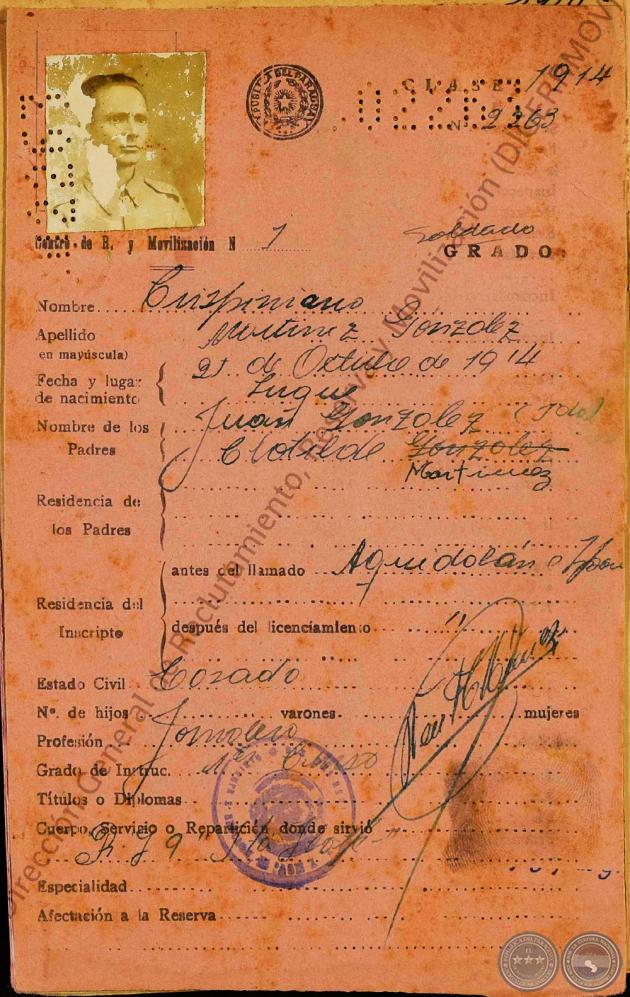 REPUBLICA DEL PARAGUAY
CLASE 1914
Nº 2263
02263
Centro de R. y Movilización N 1
Soldado
GRADO:
Nombre Crispiniano
Apellido Martinez Gonzalez
en mayúscula)
Fecha y lugar de nacimiento 25 de Octubre de 1914
Luque
Nombre de los Padres Juan Gonzalez (fdo)
Clotilde Gonzalez
Martinez
Residencia de los Padres
Residencia del Inscripto
antes del llamado
después del licenciamiento "
Estado Civil Casado
Nº. de hijos varones. mujeres
Profesión Jornalero
Grado de Instruc. 1er Curso
Títulos o Diplomas
Cuerpo, Servicio o Repartición donde sirvió
R I 9
Especialidad
Afectación a la Reserva
Dirección General de Reclutamiento, Reserva y Movilización (DIGERRMOV